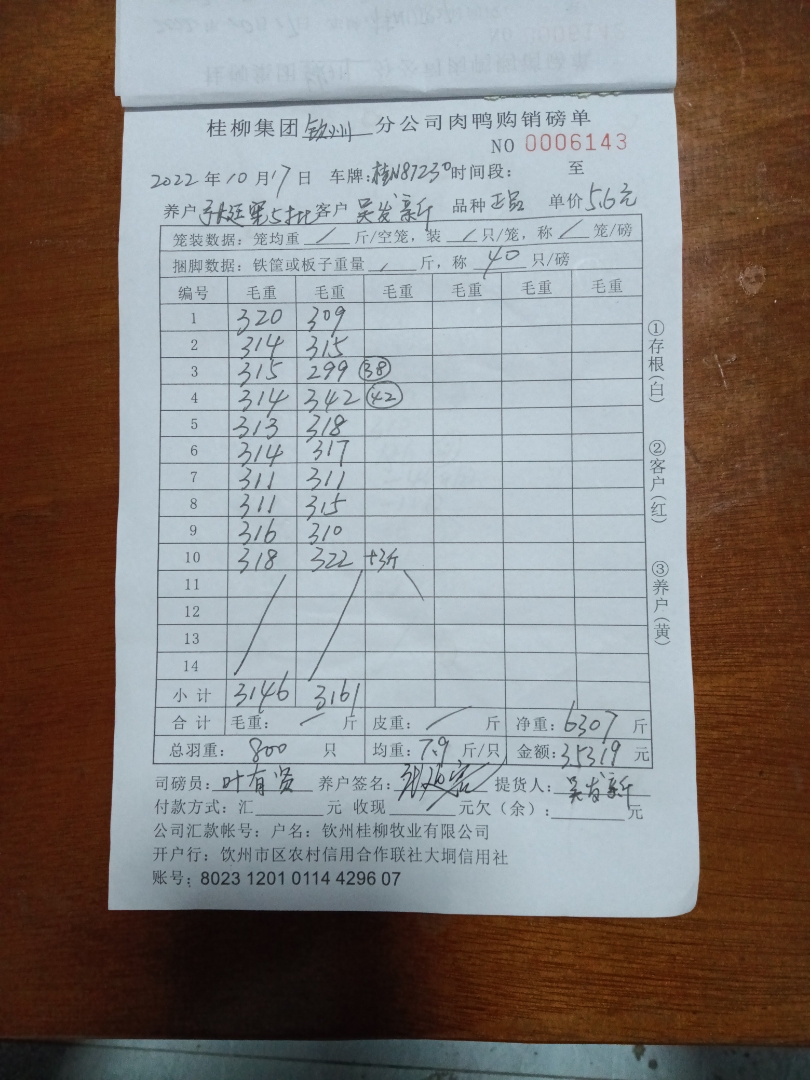 桂柳集团 钦州 分公司肉鸭购销磅单
NO 0006143
2022年10月17日 车牌:桂N87230 时间段: 至
养户 第5批 客户 吴发新 品种 正品 单价 5.6元
笼装数据: 笼均重 / 斤/空笼, 装 / 只/笼, 称 / 笼/磅
捆脚数据: 铁筐或板子重量 / 斤, 称 40 只/磅
编号 毛重 毛重 毛重 毛重 毛重 毛重
1 320 309
2 314 315
3 315 299 38
4 314 342 42
5 313 318
6 314 317
7 311 311
8 311 315
9 316 310
10 318 322 +3斤
11
12
13
14
小计 3146 3161
合计 毛重: / 斤 皮重: / 斤 净重: 6307 斤
总羽重: 800 只 均重: 7.9 斤/只 金额: 35319 元
司磅员: 叶有贤 养户签名: 提货人: 吴发新
付款方式: 汇 元 收现 元欠(余): 元
公司汇款帐号: 户名: 钦州桂柳牧业有限公司
开户行: 钦州市区农村信用合作联社大垌信用社
账号: 8023 1201 0114 4296 07
①存根(白)
②客户(红)
③养户(黄)